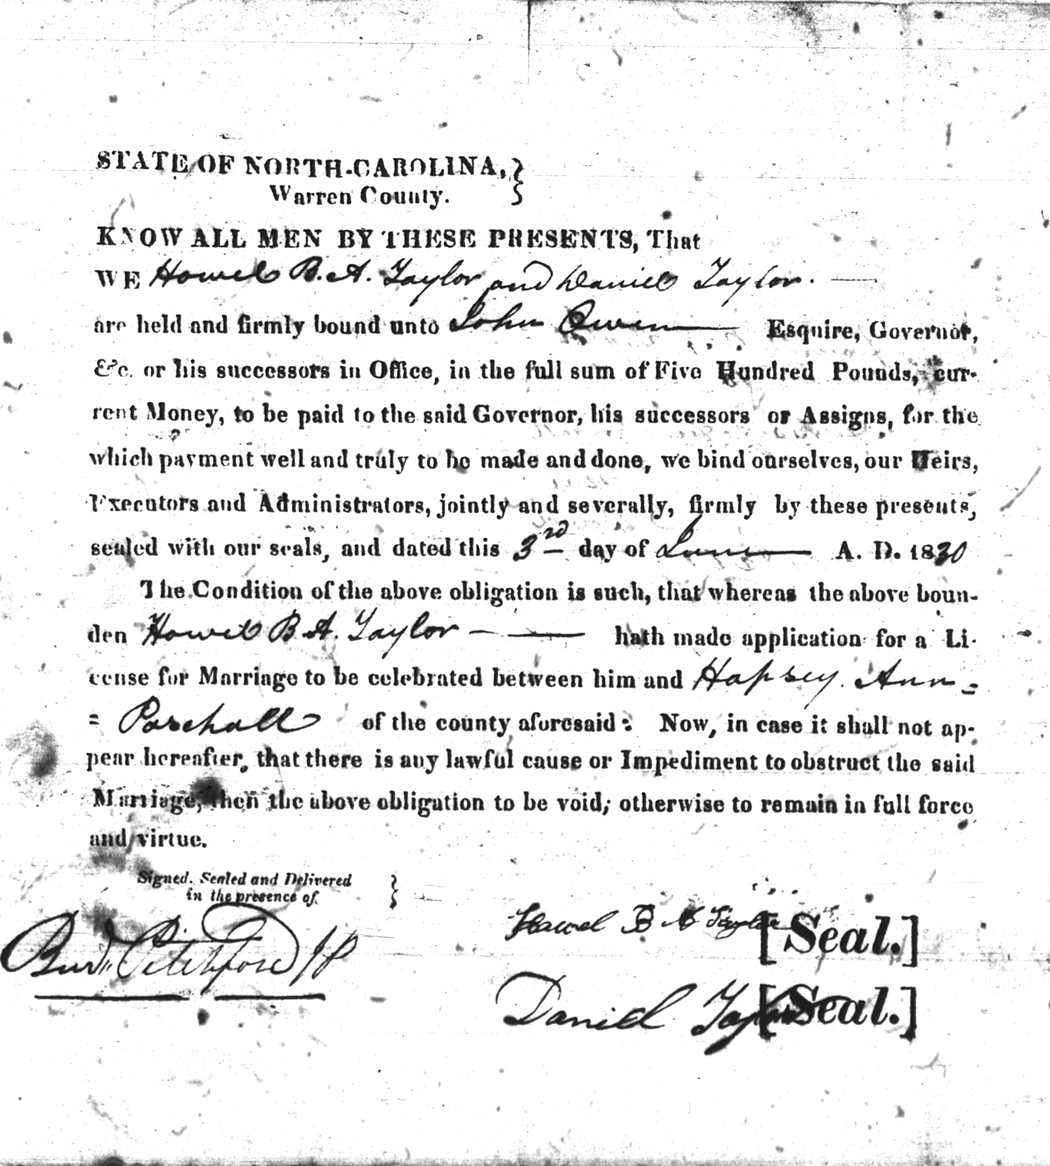 STATE OF NORTH-CAROLINA,
Warren County.
KNOW ALL MEN BY THESE PRESENTS, That
WE Howel B. A. Taylor and Daniel Taylor.
are held and firmly bound unto John Owen Esquire, Governor,
&c. or his successors in Office, in the full sum of Five Hundred Pounds, cur-
rent Money, to be paid to the said Governor, his successors or Assigns, for the
which payment well and truly to be made and done, we bind ourselves, our Heirs,
Executors and Administrators, jointly and severally, firmly by these presents,
sealed with our seals, and dated this 3rd day of A. D. 1830
The Condition of the above obligation is such, that whereas the above boun-
den Howel B A. Taylor hath made application for a Li-
cense for Marriage to be celebrated between him and Hapsey Ann =
= Paschall of the county aforesaid: Now, in case it shall not ap-
pear hereafter, that there is any lawful cause or Impediment to obstruct the said
Marriage, then the above obligation to be void; otherwise to remain in full force
and virtue.
Signed, Sealed and Delivered
in the presence of
Howel B A Taylor [Seal.]
Pitchford JP
Daniel Taylor [Seal.]